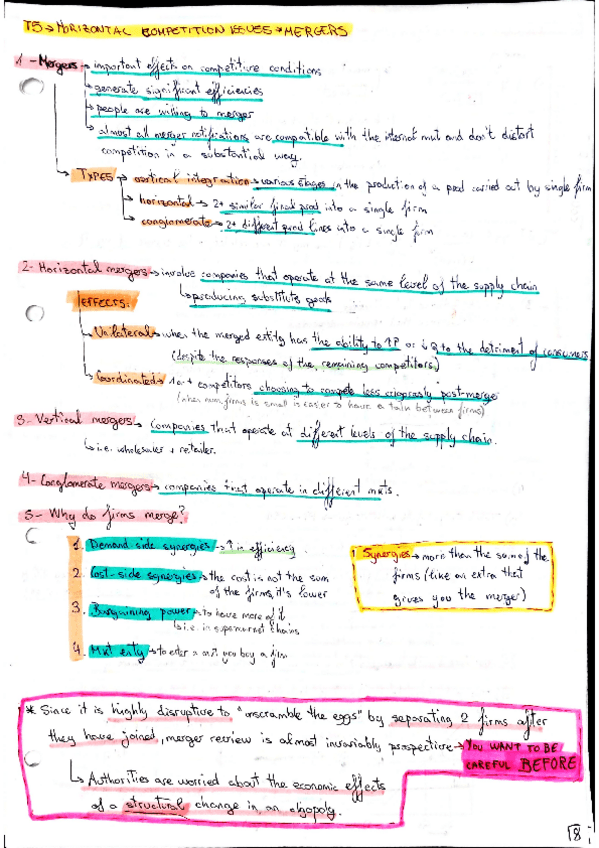 T5 → HORIZONTAL COMPETITION ISSUES → MERGERS
1 - Mergers → important effects on competitive conditions
↳ generate significant efficiencies
↳ people are willing to merger
↳ almost all merger notifications are compatible with the internal mkt and don't distort
competition in a substantial way.
↳ TYPES → vertical integration → various stages in the production of a prod carried out by single firm
↳ horizontal → 2+ similar final prod into a single firm
↳ conglomerate → 2+ different prod lines into a single firm
2 - Horizontal mergers → involve companies that operate at the same level of the supply chain
↳ producing substitute goods
EFFECTS:
↳ Unilateral → when the merged entity has the ability to ↑P or ↓Q to the detriment of consumers
(despite the responses of the remaining competitors)
↳ Coordinated → 1 or + competitors choosing to compete less vigorously post-merge
(when num firms is small is easier to have a talk between firms)
3 - Vertical mergers → companies that operate at different levels of the supply chain.
↳ i.e. wholesaler + retailer.
4 - Conglomerate mergers → companies that operate in different mkts.
5 - Why do firms merge?
1. Demand side synergies → ↑ in efficiency
2. Cost-side synergies → the cost is not the sum
of the firms, it's lower
3. Bargaining power → to have more of it
↳ i.e. in supermarket chains
4. Mkt entry → to enter a mkt. you buy a firm
Synergies → more than the sum of the
firms (like an extra that
gives you the merger)
* Since it is highly disruptive to "unscramble the eggs" by separating 2 firms after
they have joined, merger review is almost invariably prospective → YOU WANT TO BE
CAREFUL BEFORE
↳ Authorities are worried about the economic effects
of a structural change in an oligopoly.
8